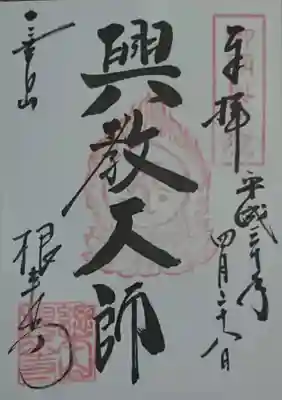 奉拝
平成三十年
四月二十八日
興教大師
一乗山
根来寺